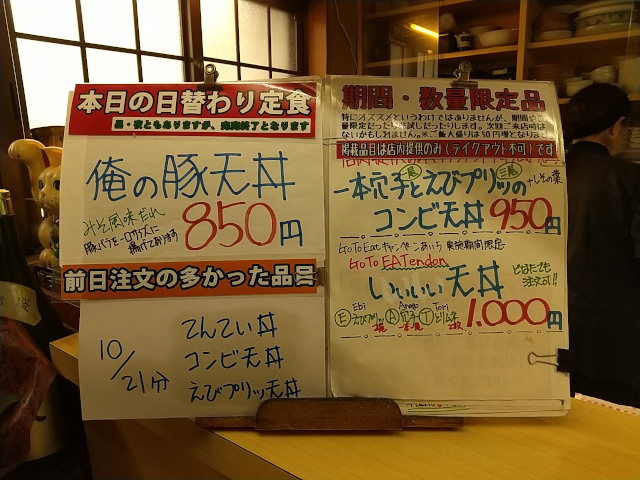 本日の日替わり定食
昼・夜ともありますが、完売終了となります
俺の豚天丼
みそ風味だれ
豚バラを一口サイズに
揚げております
850円
前日注文の多かった品
10/21分
てんてい丼
コンビ天丼
えびプリッツ天丼
期間・数量限定品
特にオススメというわけではありませんが、期間や数
量限定だったり お試しだったりします。次回ご来店時は
ないかもしれません。※ご飯大盛りは50円増となります
掲載品目は店内提供のみ(テイクアウト不可)です
一本穴子とえびプリッツの
二尾
+しその葉
コンビ天丼 950円
GoToEatキャンペーンあいち 実施期間限定
GoTo EATendon
いいいい天丼
どなたでも
注文可!!
Ebi
Anago
Tori
Eえびプリッツ A穴子 Tとりムネ
一本 2枚
1.000円